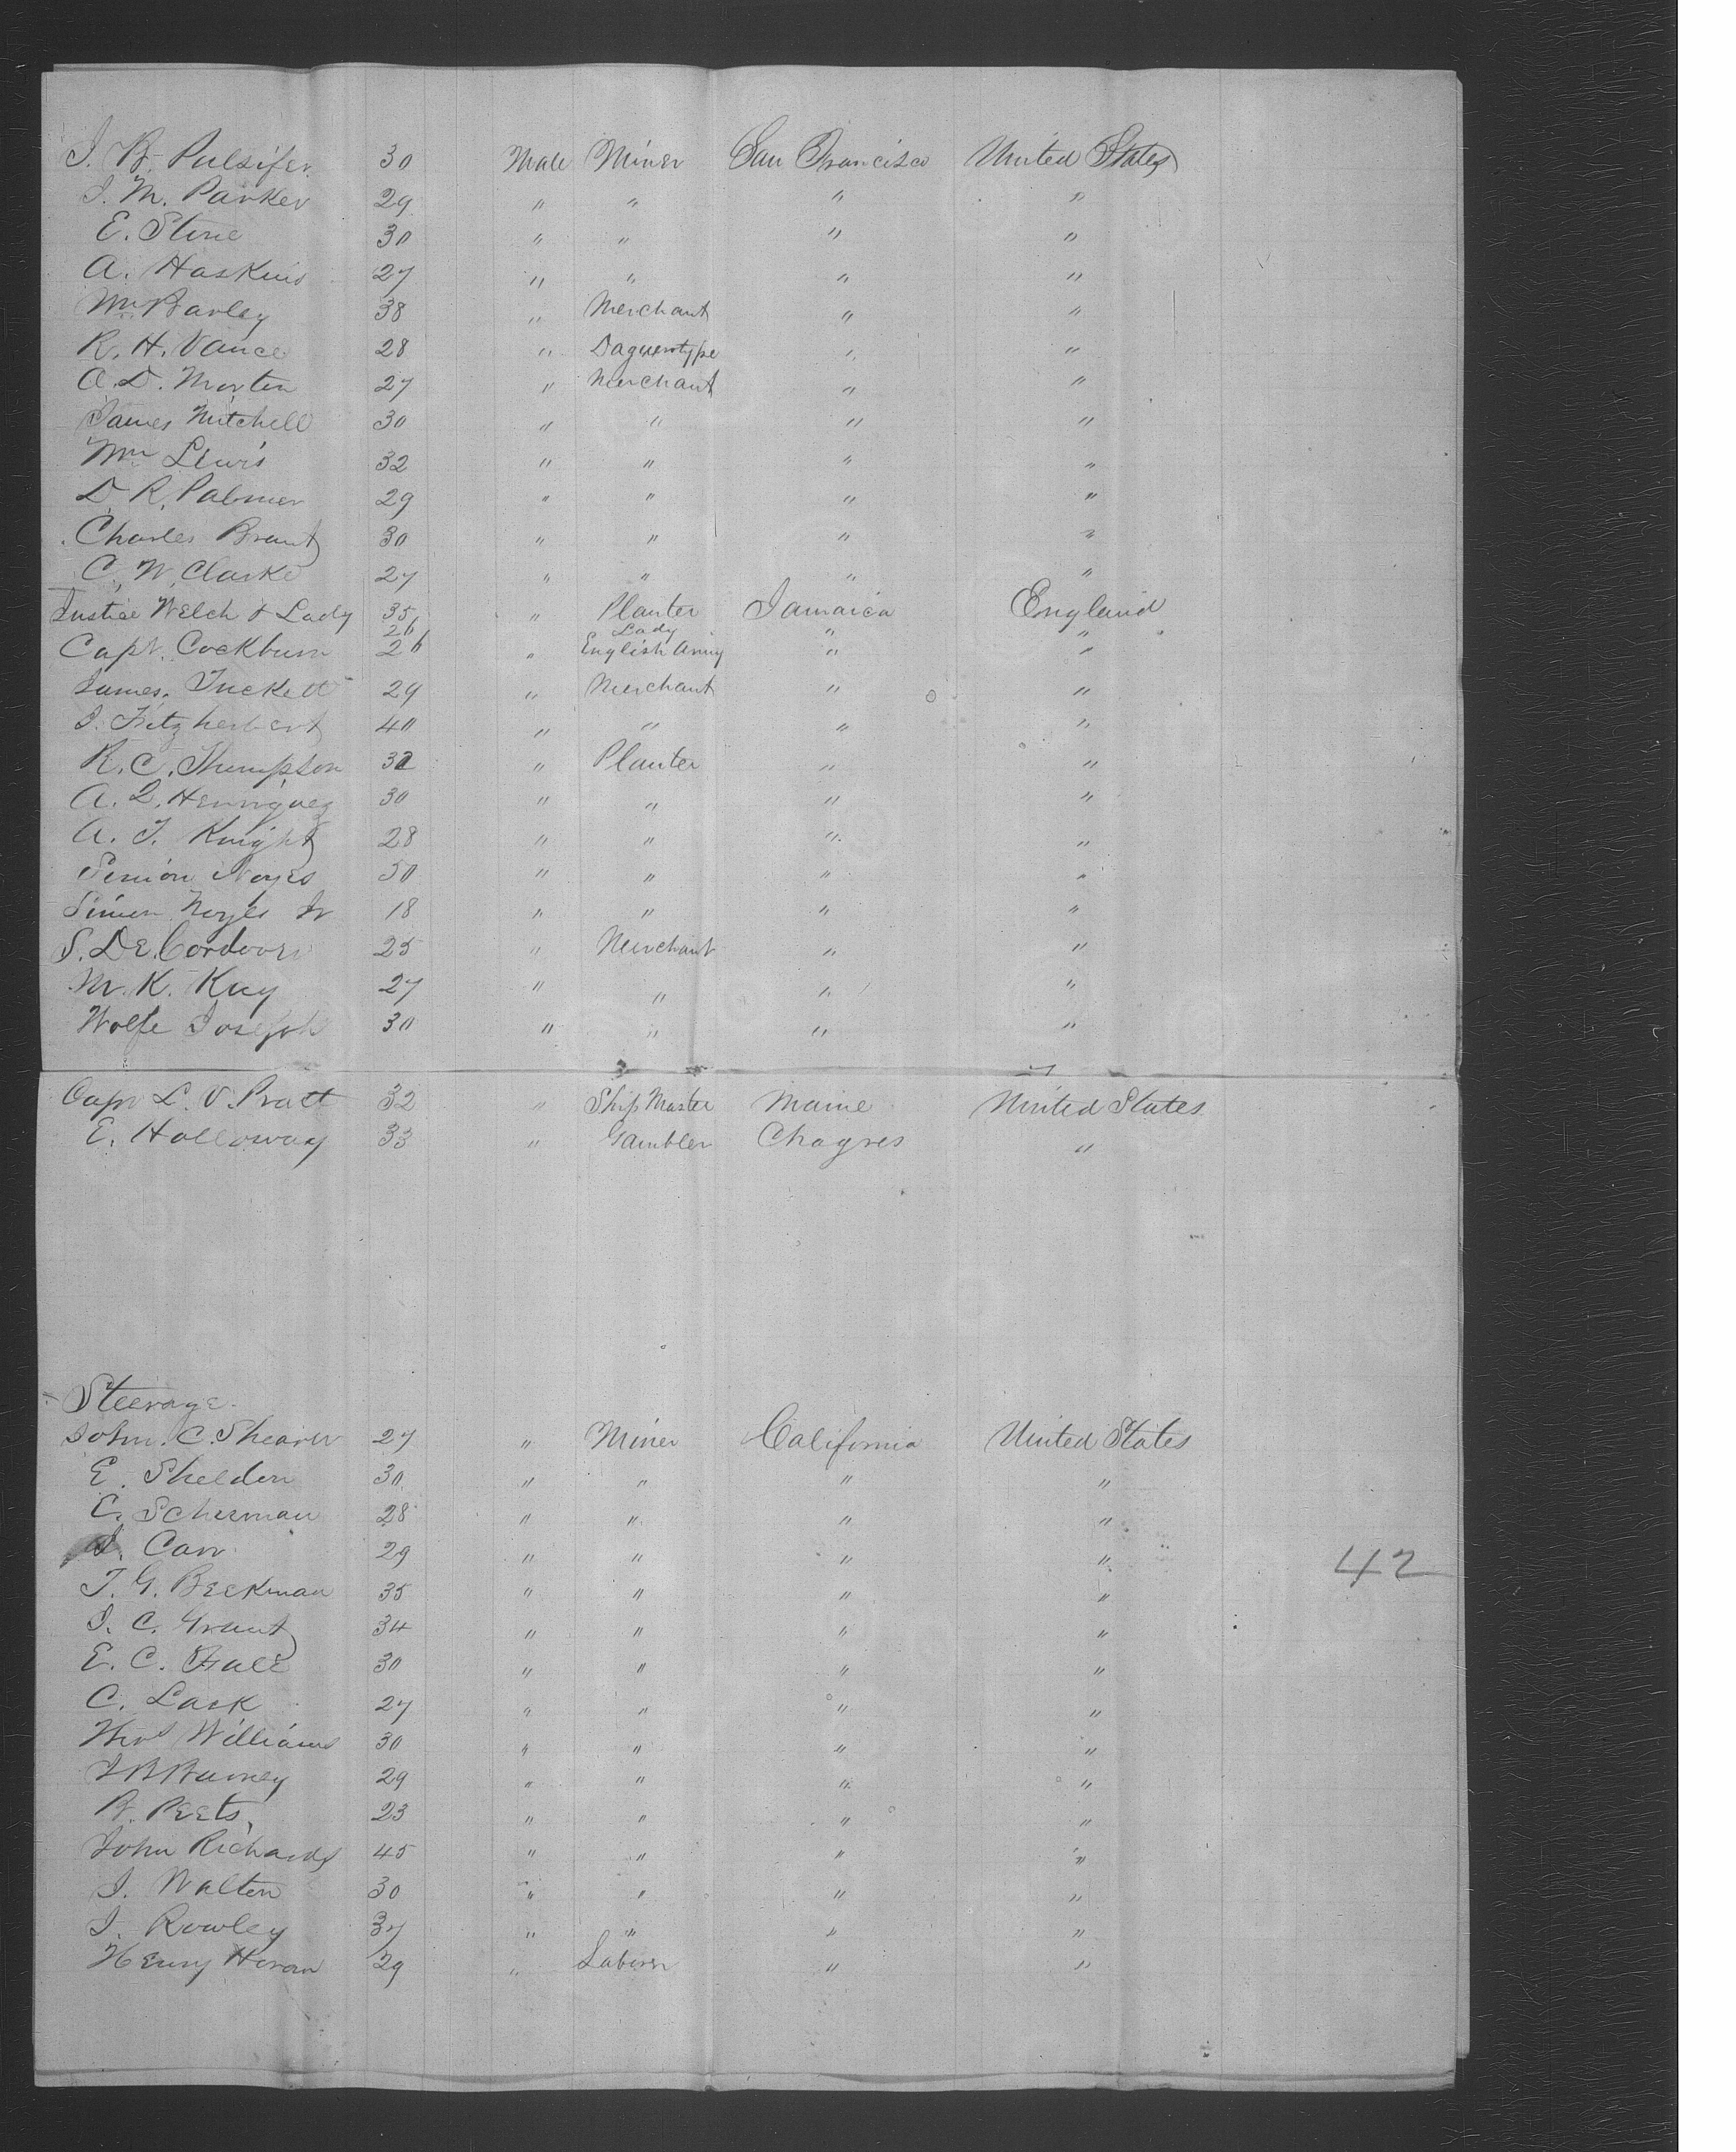 J. B. Pulsifer 30 Male Miner San Francisco United States
J. M. Parker 29 " " " "
E. Stone 30 " " " "
A. Haskins 27 " " " "
Wm Barley 38 " Merchant " "
R. H. Vance 28 " Daguerotype " "
A. D. Morten 27 " Merchant " "
James Mitchell 30 " " " "
Wm Lewis 32 " " " "
D. R. Palmer 29 " " " "
Charles Brant 30 " " " "
C. W. Clarke 27 " " " "
Justice Welch & Lady 35 " Planter Jamaica England
26 Lady " "
Capt. Cockburn 26 " English Army " "
James. Tuckett 29 " Merchant " "
J. Fitzherbert 40 " " " "
R. C. Thompson 32 " Planter " "
A. Q. Henriquez 30 " " " "
A. J. Knight 28 " " " "
Simon Noyes 50 " " " "
Simon Noyes Jr 18 " " " "
S. De. Cordova 25 " Merchant " "
M. K. Kay 27 " " " "
Wolfe Joseph 30 " " " "
Capt L. V. Pratt 32 " Ship Master Maine United States
E. Holloway 33 " Gambler Chagres "
Steerage.
John. C. Shearer 27 " Miner California United States
E. Sheldon 30 " " " "
E. Scherman 28 " " " "
J. Carr 29 " " " "
42
T. G. Beekman 35 " " " "
J. C. Grant 34 " " " "
E. C. Hale 30 " " " "
C. Lask 27 " " " "
Thos Williams 30 " " " "
J B Burney 29 " " " "
B. Peets, 23 " " " "
John Richards 45 " " " "
J. Walten 30 " " " "
J. Rowley 37 " " " "
Henry Horan 29 " Laborer " "